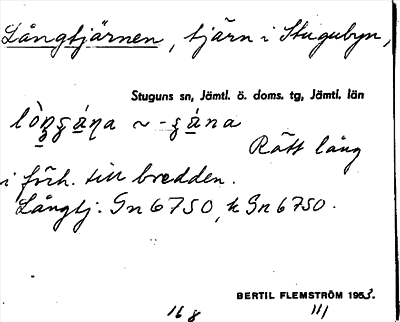 Långtjärnen, tjärn i Stugubyn,
Stuguns sn, Jämtl. ö. doms. tg, Jämtl. län
Rätt lång
i förh. till bredden.
Långtj. Gn 6750, k Gn 6750.
BERTIL FLEMSTRÖM 1953.
168 111